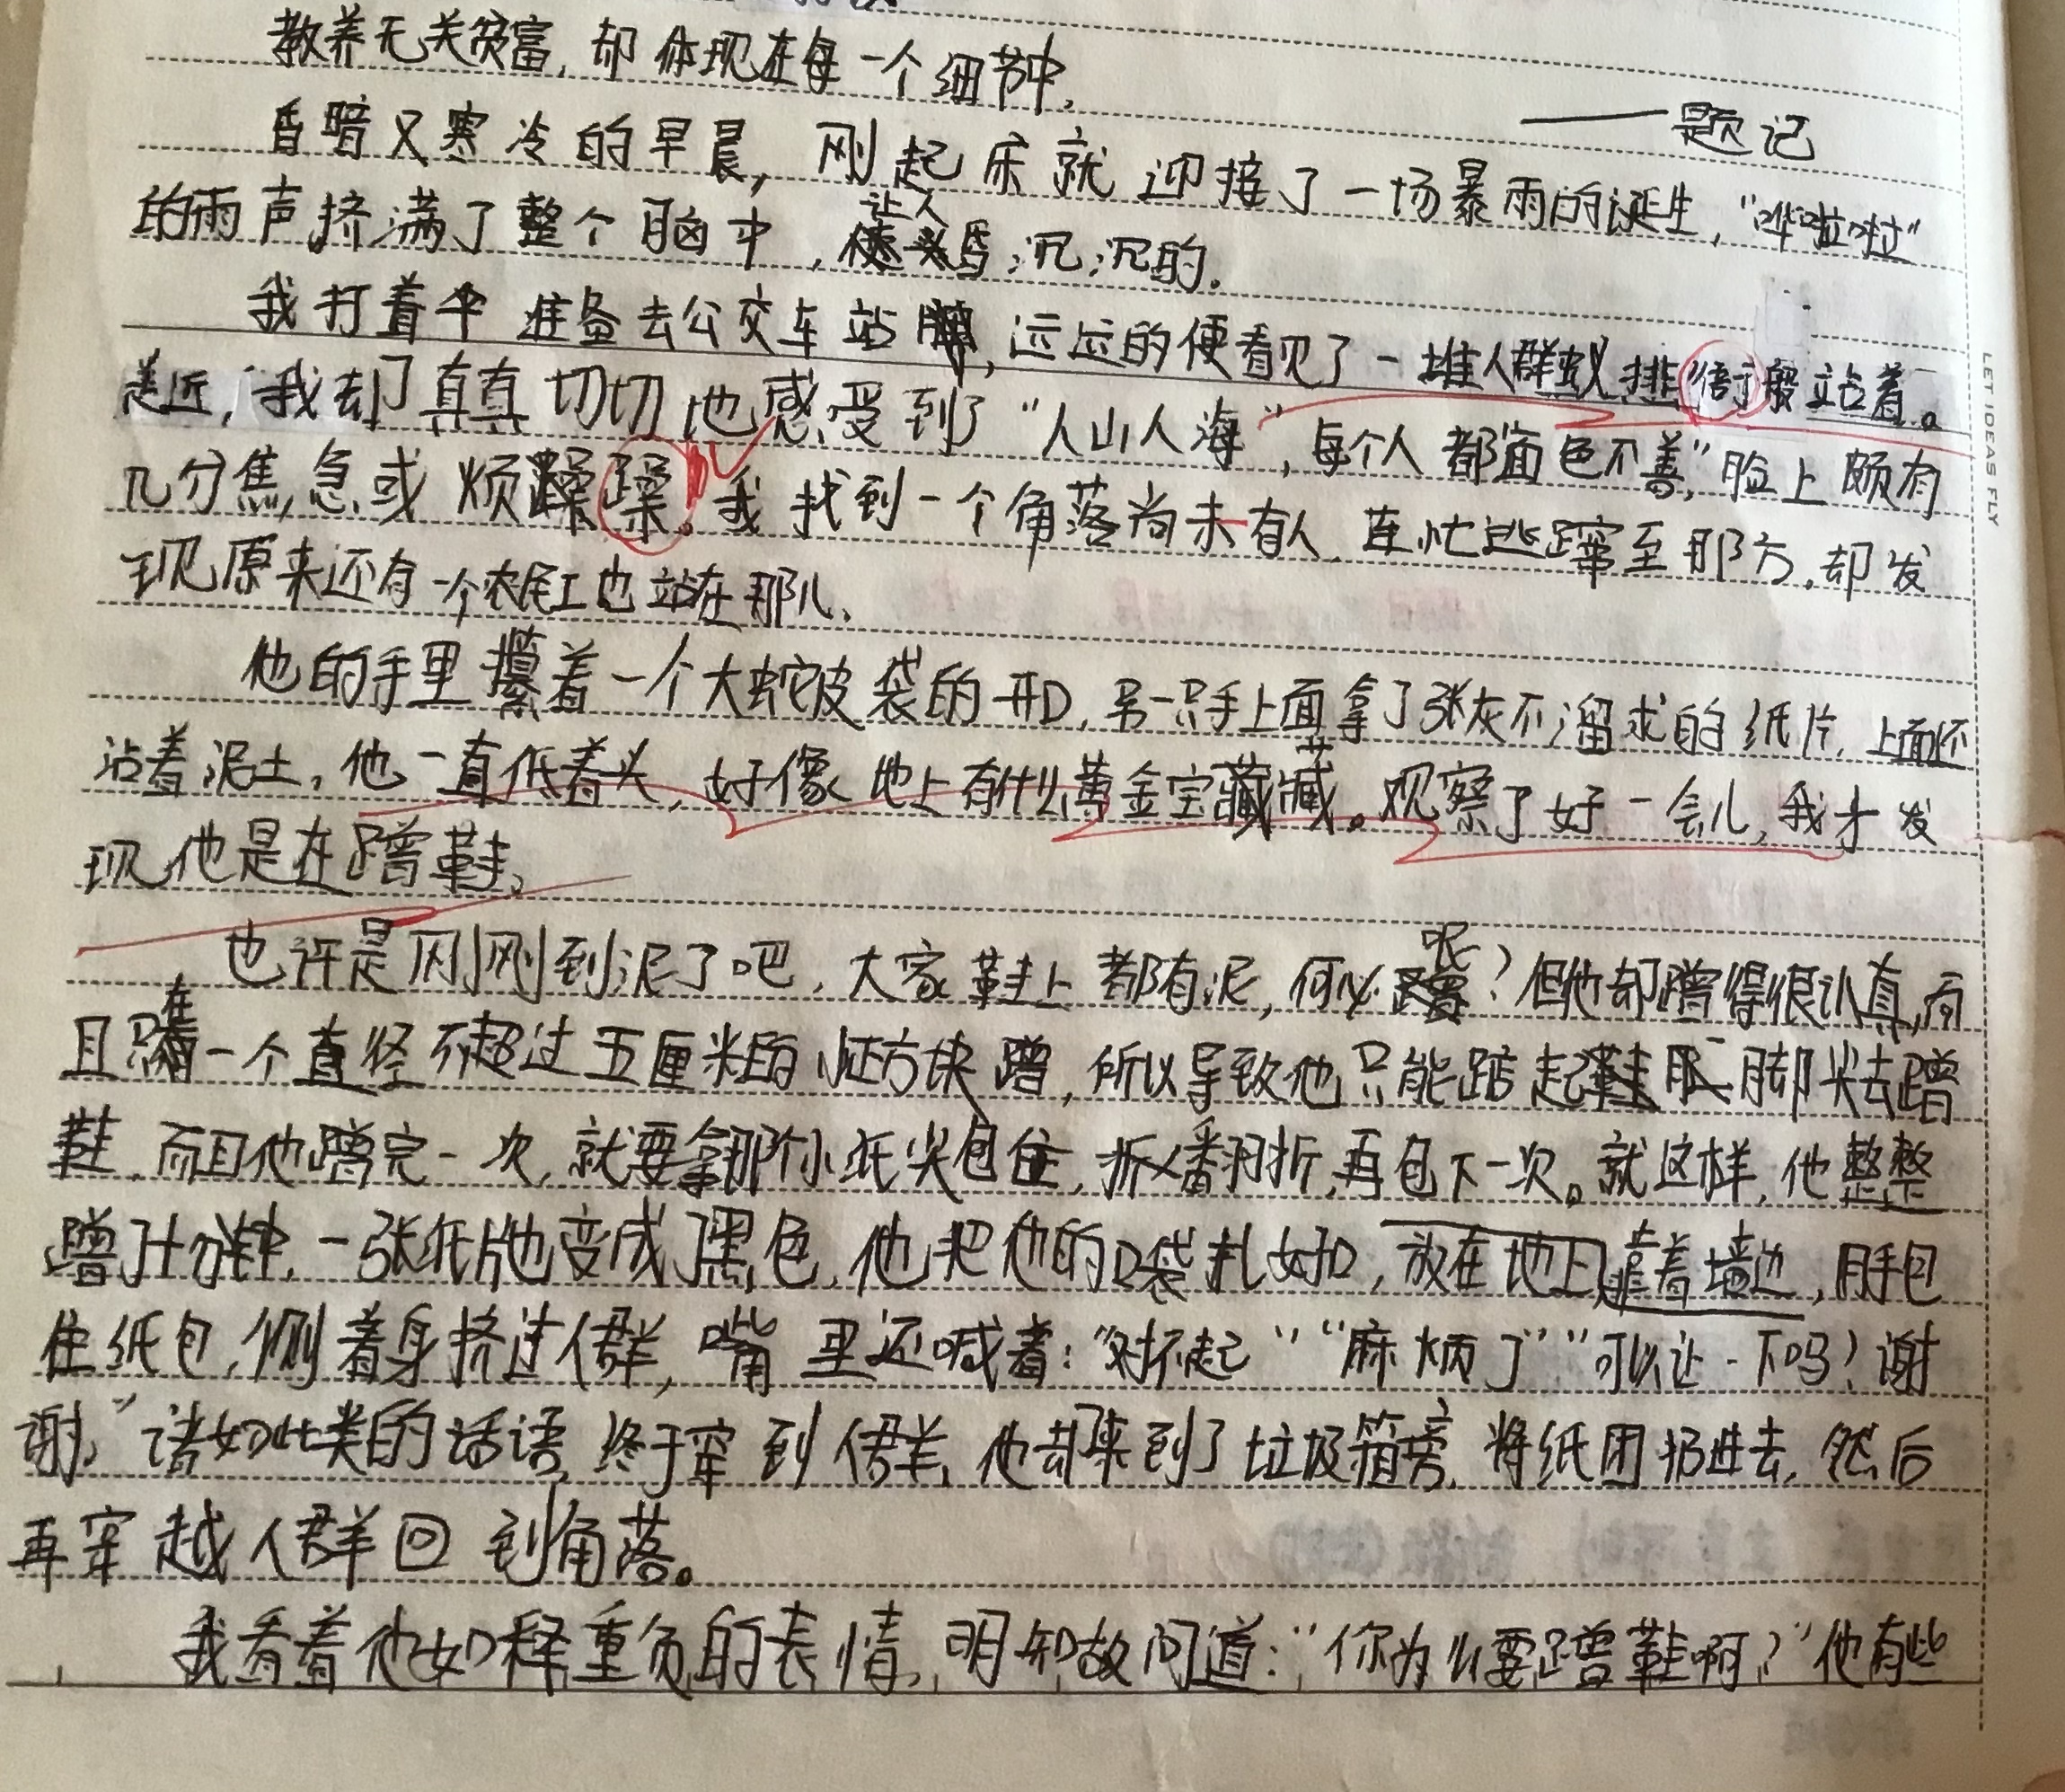 教养无关贫富,却体现在每一个细节中.
——题记
昏暗又寒冷的早晨,刚起床就迎接了一场暴雨的诞生,"哗啦啦"
的雨声挤满了整个脑中,让人昏沉沉的.
我打着伞准备去公交车站牌,远远的便看见了一堆人群蚁排衙般站着。
走近,我却真真切切地感受到了"人山人海",每个人都"面色不善",脸上颇有
几分焦急或烦躁躁。我找到一个角落尚未有人,连忙逃蹿至那方.却发
现原来还有一个农民工也站在那儿.
他的手里攥着一个大蛇皮袋的开口,另一只手上面拿了张灰不溜求的纸片,上面还
沾着泥土,他一直低着头,好像地上有什么黄金宝藏。观察了好一会儿,我才发
现他是在蹭鞋.
也许是刚刚到泥了吧,大家鞋上都有泥,何必呢?但他却蹭得很认真,而
且只在一个直径不超过五厘米的小正方块蹭,所以导致他只能踮起脚尖去蹭
鞋.而且他蹭完一次,就要拿那个小纸尖包住,折又翻折,再包下一次。就这样,他整整
蹭了十分钟,一张纸片也变成了黑色,他把他的口袋扎好口,放在地上靠着墙边,用手包
住纸包,侧着身挤过人群,嘴里还喊着:"对不起""麻烦了""可以让一下吗?谢
谢,"诸如此类的话语,终于穿到人群,他却来到了垃圾箱旁,将纸团扔进去,然后
再穿越人群回到角落。
我看着他如释重负的表情,明知故问道:"你为什么要蹭鞋啊?"他有些
LET IDEAS FLY